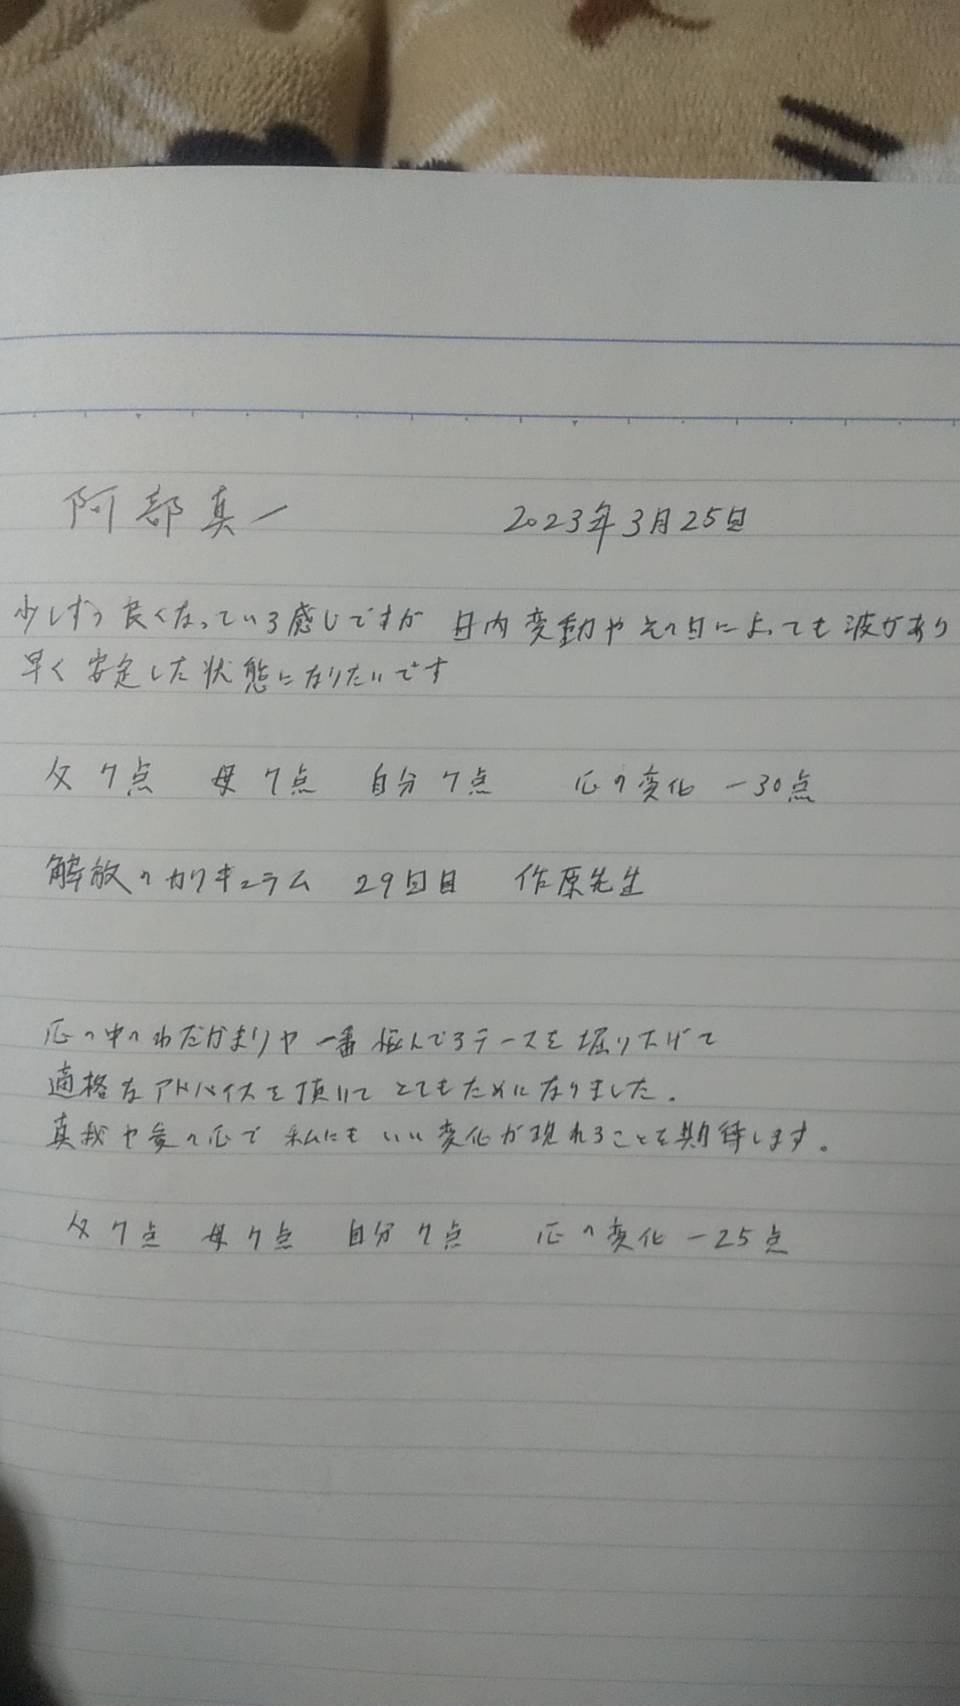 阿部真一 2023年3月25日
少しずつ良くなっている感じですが 日内変動やその日によっても波があり
早く安定した状態になりたいです
父7点 母7点 自分7点 心の変化 -30点
解放のカリキュラム 29回目 佐原先生
心の中のわだかまりや一番悩んでるテーマを掘り下げて
適格なアドバイスを頂いてとてもためになりました。
真我や愛の心で私にもいい変化が現れることを期待します。
父7点 母7点 自分7点 心の変化 -25点